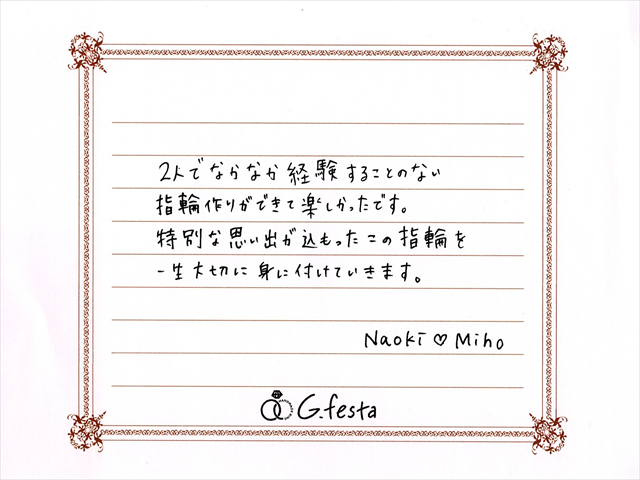 2人でなかなか経験することのない
指輪作りができて楽しかったです。
特別な思い出が込もったこの指輪を
一生大切に身に付けていきます。
Naoki ♡ Miho
G.festa